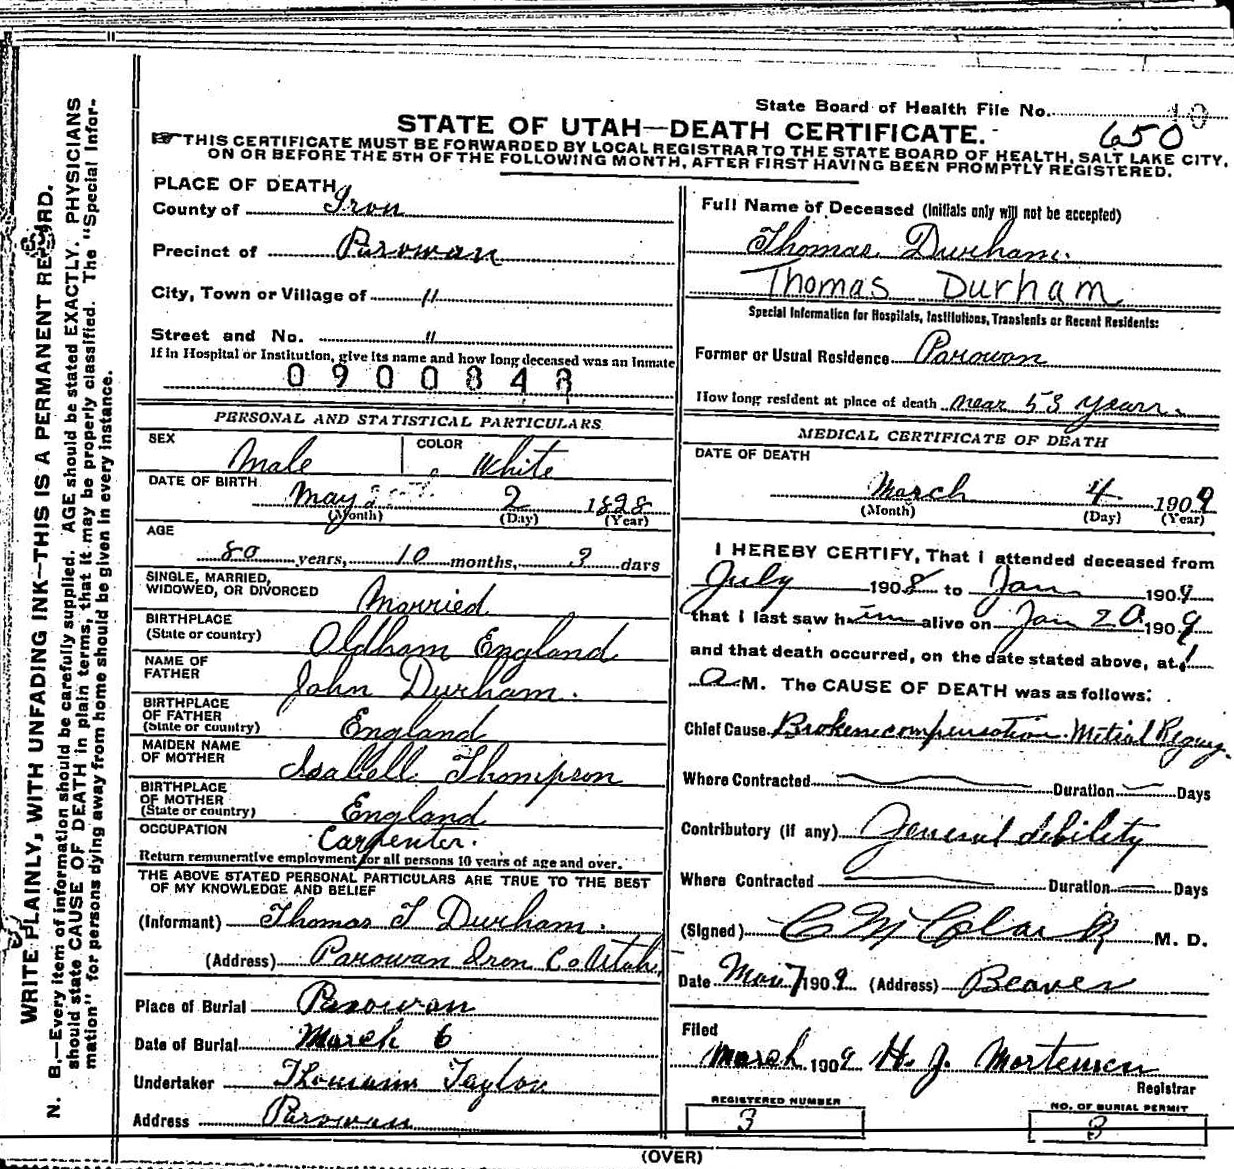 State Board of Health File No. 10
STATE OF UTAH—DEATH CERTIFICATE. 650
THIS CERTIFICATE MUST BE FORWARDED BY LOCAL REGISTRAR TO THE STATE BOARD OF HEALTH, SALT LAKE CITY,
ON OR BEFORE THE 5TH OF THE FOLLOWING MONTH, AFTER FIRST HAVING BEEN PROMPTLY REGISTERED.
WRITE PLAINLY, WITH UNFADING INK—THIS IS A PERMANENT RECORD.
N. B.—Every item of information should be carefully supplied. AGE should be stated EXACTLY. PHYSICIANS
should state CAUSE OF DEATH in plain terms, that it may be properly classified. The "Special Infor-
mation" for persons dying away from home should be given in every instance.
PLACE OF DEATH
County of Iron
Precinct of Parowan
City, Town or Village of "
Street and No. "
If in Hospital or Institution, give its name and how long deceased was an inmate
0900848
PERSONAL AND STATISTICAL PARTICULARS
SEX Male COLOR White
DATE OF BIRTH
May 2 1828
(Month) (Day) (Year)
AGE
80 years, 10 months, 3 days
SINGLE, MARRIED,
WIDOWED, OR DIVORCED Married
BIRTHPLACE
(State or country) Oldham England
NAME OF
FATHER John Durham.
BIRTHPLACE
OF FATHER
(State or country) England
MAIDEN NAME
OF MOTHER Isabell Thompson
BIRTHPLACE
OF MOTHER
(State or country) England
OCCUPATION Carpenter.
Return remunerative employment for all persons 10 years of age and over.
THE ABOVE STATED PERSONAL PARTICULARS ARE TRUE TO THE BEST
OF MY KNOWLEDGE AND BELIEF
(Informant) Thomas T Durham.
(Address) Parowan Iron Co Utah.
Place of Burial Parowan
Date of Burial March 6
Undertaker Taylor
Address Parowan
Full Name of Deceased (Initials only will not be accepted)
Thomas Durham.
Thomas Durham
Special Information for Hospitals, Institutions, Transients or Recent Residents:
Former or Usual Residence Parowan
How long resident at place of death near 53 years.
MEDICAL CERTIFICATE OF DEATH
DATE OF DEATH
March 4 1909
(Month) (Day) (Year)
I HEREBY CERTIFY, That I attended deceased from
July 1908 to Jan 1909
that I last saw him alive on Jan 20 1909
and that death occurred, on the date stated above, at 1
a M. The CAUSE OF DEATH was as follows:
Chief Cause Broken compensation Mitial Regurg.
Where Contracted Duration Days
Contributory (if any) General debility
Where Contracted Duration Days
(Signed) C M Clark M. D.
Date Mar 7 1909 (Address) Beaver
Filed
March 1909 H. J. Mortensen
Registrar
REGISTERED NUMBER
3
NO. OF BURIAL PERMIT
3
(OVER)